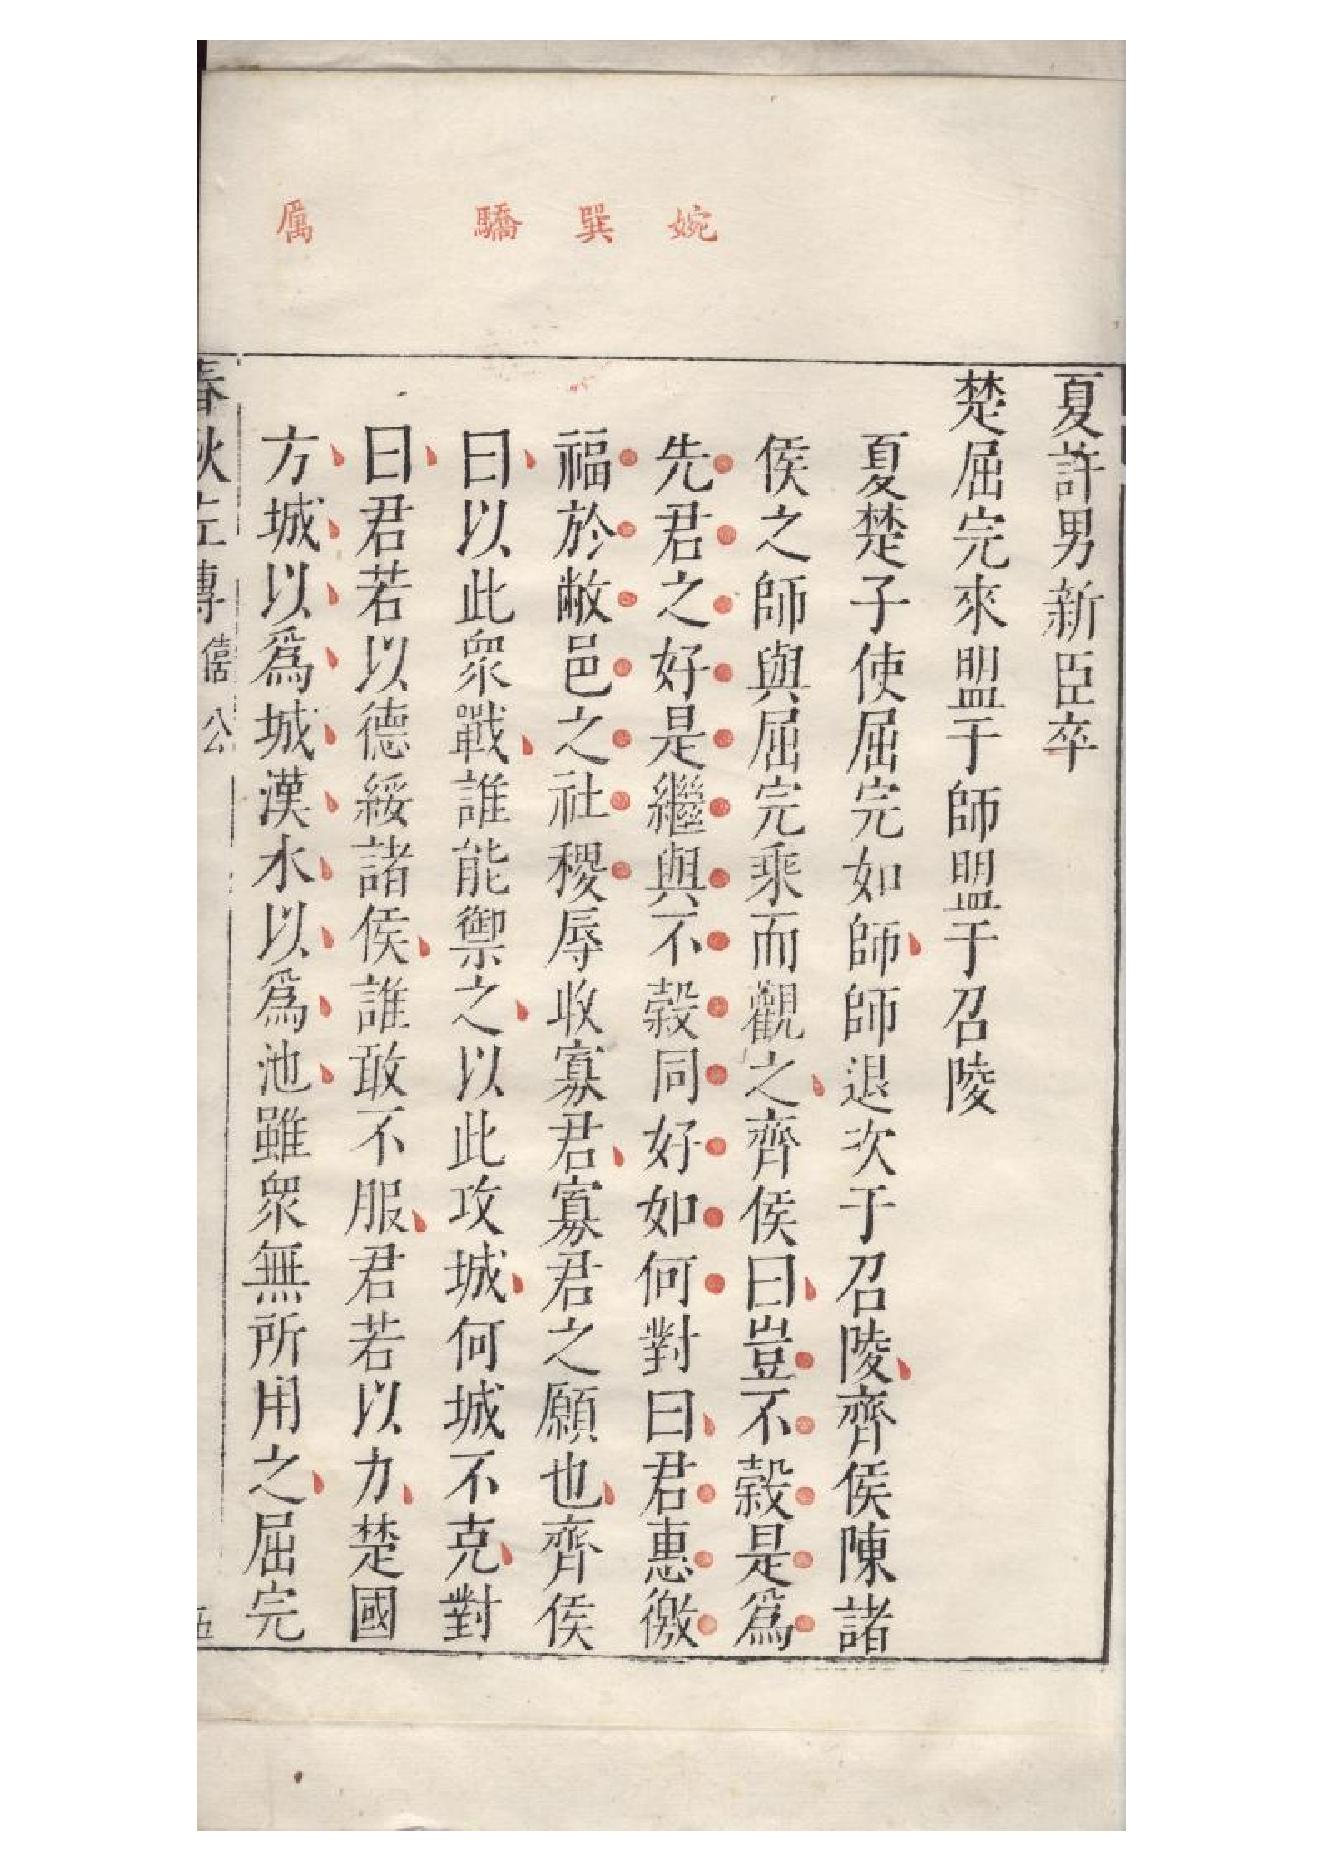 婉
巽
驕
厲
夏許男新臣卒
楚屈完來盟于師盟于召陵
夏楚子使屈完如師師退次于召陵齊侯陳諸
侯之師與屈完乘而觀之齊侯曰豈不穀是爲
先君之好是繼與不穀同好如何對曰君惠徼
福於敝邑之社稷辱收寡君寡君之願也齊侯
曰以此衆戰誰能禦之以此攻城何城不克對
曰君若以德綏諸侯誰敢不服君若以力楚國
方城以爲城漢水以爲池雖衆無所用之屈完
春秋左傳 僖公 五